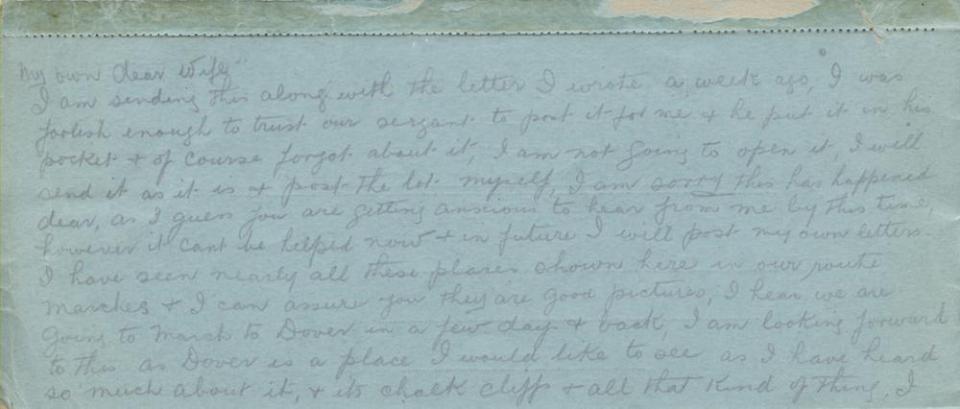 My own dear Wife
I am sending this along with the letter I wrote a week ago, I was
foolish enough to trust our sergant to post it for me & he put it in his
pocket & of course forgot about it, I am not going to open it, I will
send it as it is & post the lot myself, I am sorry this has happened
dear, as I guess you are getting anscious to hear from me by this time,
however it cant be helped now & in future I will post my own letters.
I have seen nearly all these places shown here in our route
marches & I can assure you they are good pictures, I hear we are
going to march to Dover in a few days & back, I am looking forward
to this as Dover is a place I would like to see as I have heard
so much about it, & its chalk cliffs & all that kind of thing, I